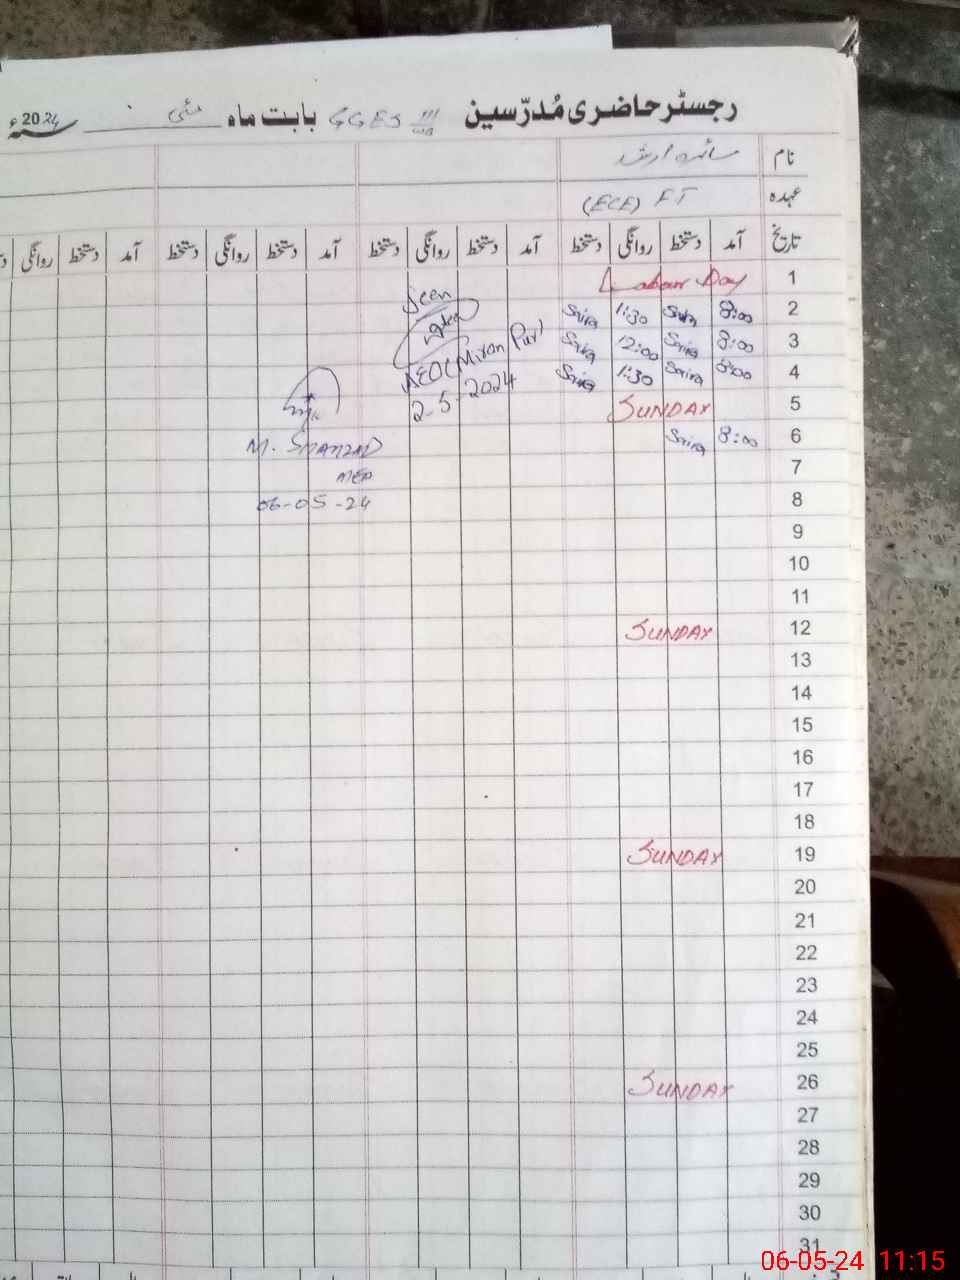 رجسٹر حاضری مُدرّسین GGES بابت ماہ مئی سنہ 2024ء
نام سائرہ ارشد
عہدہ (ECE) FT
تاریخ آمد دستخط روانگی دستخط آمد دستخط روانگی دستخط آمد دستخط روانگی دستخط آمد دستخط روانگی
1 Labour Day
Seen
2 8:00 1:30 Saira
3 8:00 Saira 12:00 Saira
AEO (Miran Pur)
4 8:00 Saira 1:30 Saira
2-5-2024
5 SUNDAY
6 8:00 Saira
M. SHAHZAD
7
MEA
8
06-05-24
9
10
11
12 SUNDAY
13
14
15
16
17
18
19 SUNDAY
20
21
22
23
24
25
26 SUNDAY
27
28
29
30
31
06-05-24 11:15